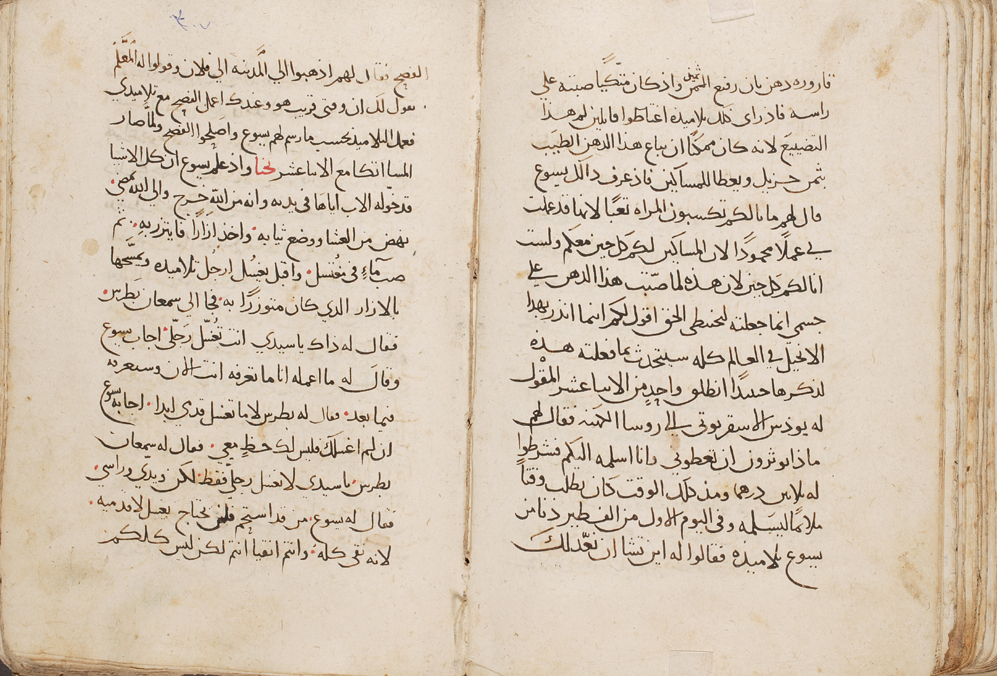 قاروره دهن بان رفيع الثمن ثمين واذ كان متكيا صبته على
راسه فاذ راى ذلك تلاميذه اغتاظوا قايلين لم هذا
التضييع لانه كان ممكنا ان يباع هذا الدهن الطيب
بثمن جزيل ويعطا للمساكين فاذ عرف ذالك يسوع
قال لهم ما بالكم تكسبون المراه تعبا لانها قد عملت
بي عملا محمودا لان المساكين لكم كل حين معكم ولست
انا لكم كل حين لان هذه لما صبت هذا الدهن على
جسمي انما جعلته لتحنيطي الحق اقول لكم اينما انذر بهذا
الانجيل في العالم كله سيتحدث بما فعلته هذه
لذكرها حينيذا انطلق واحد من الاثنا عشر المقول
له يوذس الاسقريوتي الى روسا الكهنه فقال لهم
ماذا توثرون ان تعطوني وانا اسلمه اليكم فشرطوا
له ثلاثين درهما ومن ذلك الوقت كان يطلب وقتا
ملايما ليسلمه وفي اليوم الاول من الفطير دنا من
يسوع تلاميذه فقالوا له اين تشا ان نعد لك
الفصح فقال لهم اذهبوا الى المدينه الى فلان وقولوا له المعلم
يقول لك ان وقتي قريب هو وعندك اعمل الفصح مع تلاميذي
ففعل التلاميذ بحسب ما رسم لهم يسوع واصلحوا الفصح ولما صار
المسا اتكا مع الاثنا عشر لحنا واذ علم يسوع ان كل الاشيا
قد خوله الاب اياها في يديه وانه من الله خرج والى الله يمضي
نهض من العشا ووضع ثيابه واخذ ازارا فايتزر به ثم
صب ماء في مغتسل واقبل يغسل ارجل تلاميذه ويمسحها
بالازار الذي كان متوزرا به فجا الى سمعان بطرس
فقال له ذاك يا سيدي انت تغسل رجلي اجاب يسوع
وقال له ما اعمله انا ما تعرفه انت الان وستعرفه
فيما بعد فقال له بطرس لا ما تغسل قدمي ابدا اجابه يسوع
ان لم اغسلك فليس لك حظ معي فقال له سمعان
بطرس يا سيدي لا تغسل رجلي فقط لكن ويدي وراسي
فقال له يسوع من قد استحم فليس يحتاج يغسل الا قدميه
لانه نقي كله وانتم انقيا انتم لكن ليس كلكم